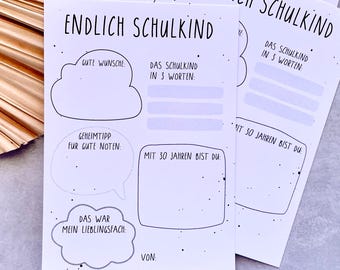 ENDLICH SCHULKIND
GUTE WÜNSCHE:
DAS SCHULKIND
IN 3 WORTEN:
GEHEIMTIPP
FÜR GUTE NOTEN:
MIT 30 JAHREN BIST DU:
DAS WAR
MEIN LIEBLINGSFACH:
VON:
SCHULKIND
DAS SCHULKIND
IN 3 WORTEN:
MIT 30 JAHREN BIST DU: